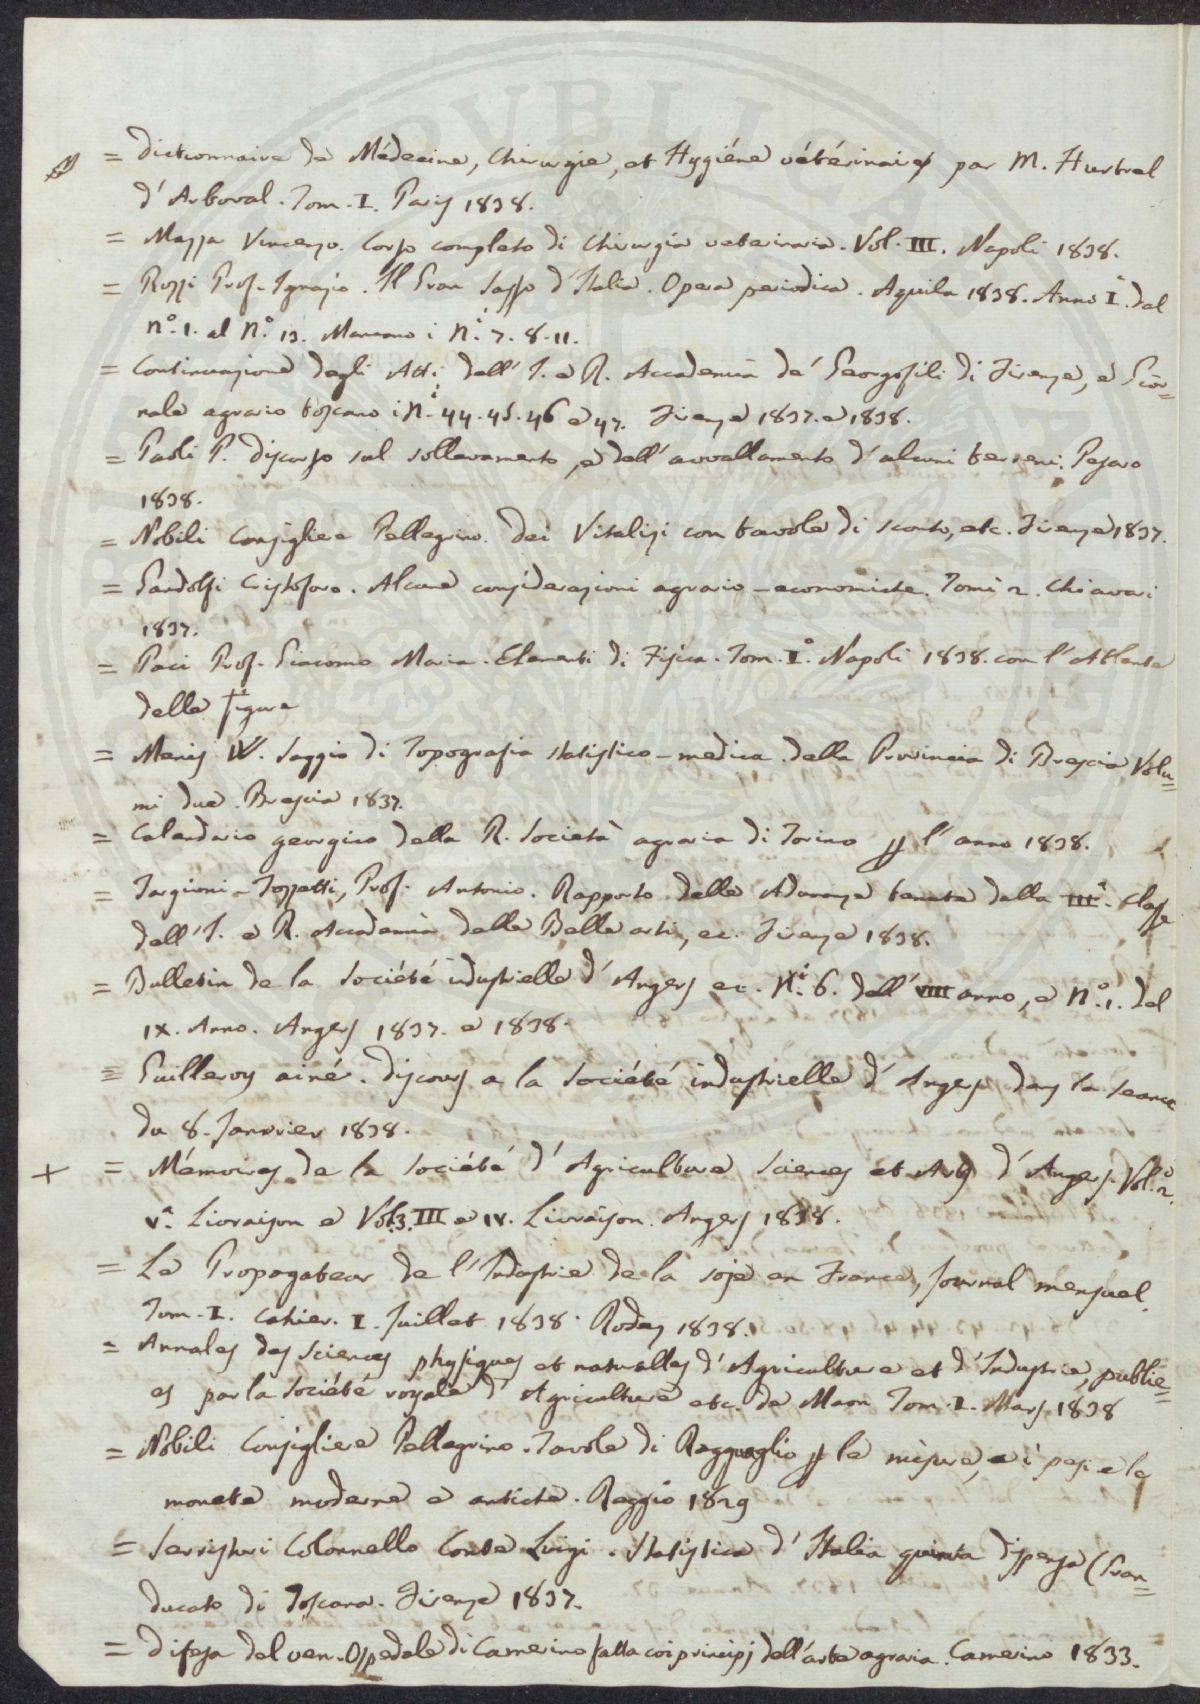 = Dictionnaire de Médecine, Chirurgie, et Hygiéne vétérinaire par M. Hurtrel
d'Arboval. Tom. I. Paris 1838.
= Mazza Vincenzo. Corso completo di Chirurgia veterinaria. Vol. III. Napoli 1838.
= Rozzi Prof. Ignazio. Il Gran Sasso d'Italia. Opera periodica. Aquila 1838. Anno I. dal
N.° 1. al N.° 13. Mancano i N.i 7. 8. 11.
= Continuazione degli Atti dell' I. e R. Accademia de' Georgofili di Firenze, e Gior=
nale agrario toscano i N.i 44. 45. 46 e 47. Firenze 1837. e 1838.
= Paoli P. Discorso sul sollevamento, e dell' avvallamento d'alcuni terreni. Pesaro
1838.
= Nobili Consigliere Pellegrino. Dei Vitalizi con tavole di sconto, etc. Firenze 1837.
= Gandolfi Cristoforo. Alcune considerazioni agrario-economiche. Tomi 2. Chiavari
1837.
= Paci Prof. Giacomo Maria. Elementi di Fisica. Tom. I.° Napoli 1838. con l'Atlante
delle figure
= Menis W. Saggio di Topografia statistico-medica della Provincia di Brescia Volu=
mi due. Brescia 1837.
= Calendario georgico della R. Società agraria di Torino p l'anno 1838.
= Targioni-Tozzetti, Prof. Antonio. Rapporto delle Adunanze tenute dalla III.a Classe
dell' I. e R. Accademia delle Belle arti, ec. Firenze 1838.
= Bulletin de la Société industrielle d'Angers ec. N.i 6. dell' VIII anno, e N.° 1. del
IX. Anno. Angers 1837. e 1838.
= Guilleroy ainé. Discours a la Société industrielle d'Angers dans la seance
du 8. Janvier 1838.
+ = Mémoires de la Société d'Agriculture Sciences et Arts d'Angers. Vol.° 2.
V.a Livraison e Vol. 3. III e IV. Livraison. Angers 1838.
= Le Propagateur de l'Industrie de la soje en France, Journal mensuel.
Tom. I. Cahier. I. Juillet 1838. Rodez 1838.
= Annales des Sciences physiques et naturelles d'Agriculture et d'Industrie, publié=
es par la Société royale d'Agriculture etc. de Tom. I. Mars 1838
= Nobili Consigliere Pellegrino. Tavole di Ragguaglio p le misure, e i pesi e le
monete moderne e antiche. Reggio 1829
= Serristori Colonnello Conte Luigi. Statistica d'Italia quinta dispensa (Gran=
ducato di Toscana. Firenze 1837.
= Difesa del ven. Ospedale di Camerino fatta coi principj dell'arte agraria. Camerino 1833.